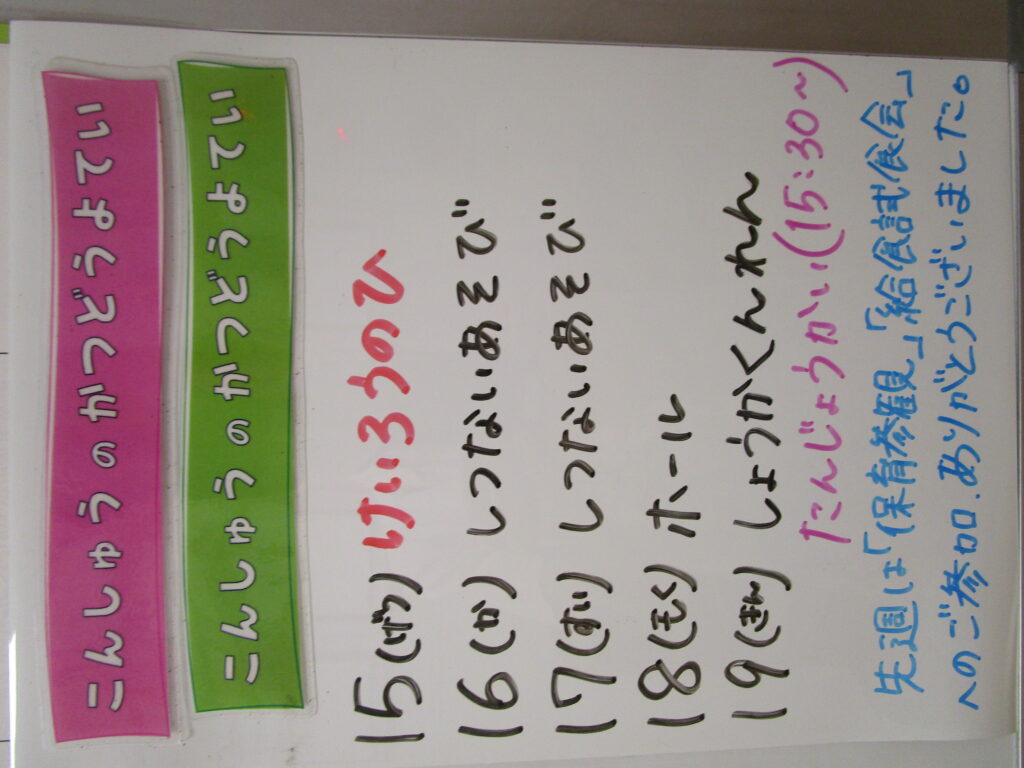 こんしゅうのかつどうよてい
こんしゅうのかつどうよてい
15(げつ) けいろうのひ
16(か) しつないあそび
17(すい) しつないあそび
18(もく) ホール
19(きん) しょうかくんれん
たんじょうかい(15:30〜)
先週は「保育参観」「給食試食会」
へのご参加、ありがとうございました。